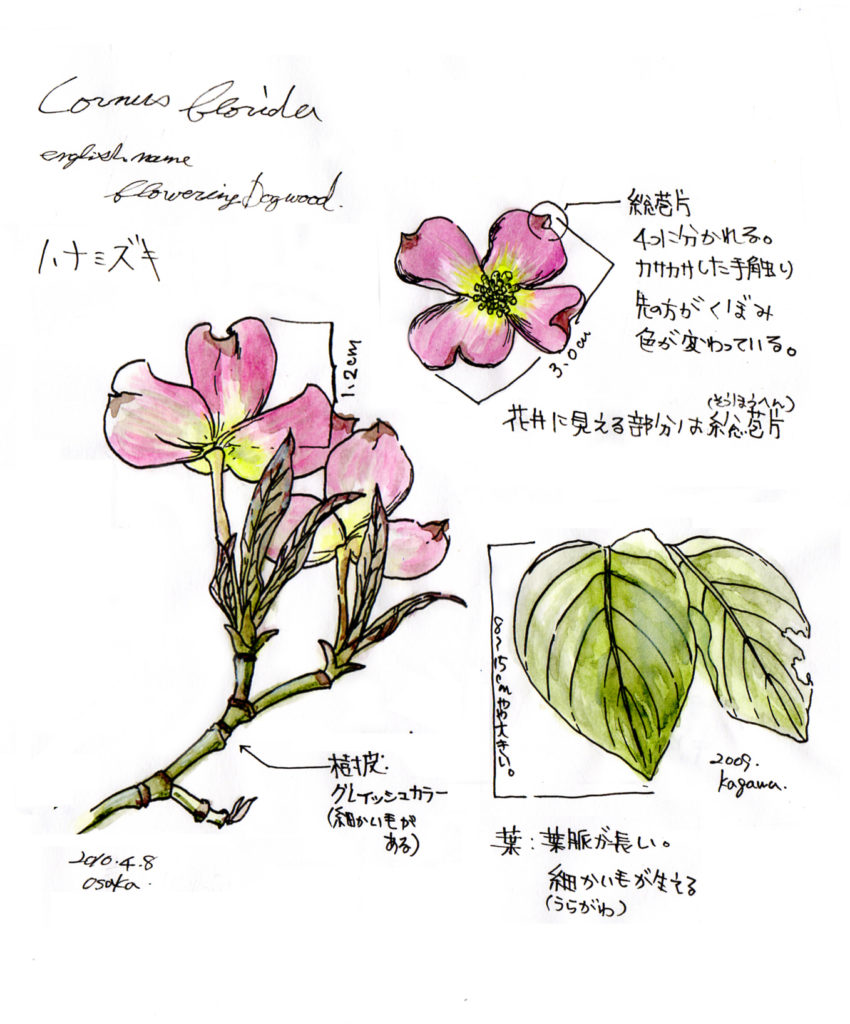 Cornus florida
english name
flowering Dogwood.
ハナミズキ
総苞片
4つに分かれる。
カサカサした手触り
先の方がくぼみ
色が変わっている。
3.0cm
1.2cm
(そうほうへん)
花弁に見える部分は総苞片
8〜15cmやや大きい。
2009.
Kagawa.
樹皮.
グレイッシュカラー
(細かい毛が
ある)
2010.4.8
osaka.
葉:葉脈が長い。
細かい毛が生える
(うらがわ)